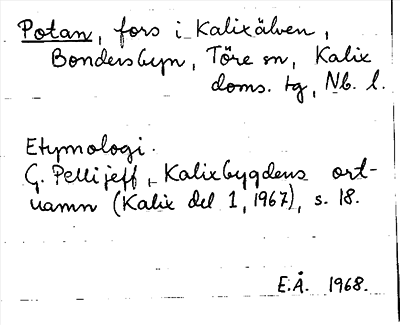 Potan, fors i Kalixälven,
Bondersbyn, Töre sn, Kalix
doms. tg, Nb. l.
Etymologi.
G. Pellijeff, Kalixbygdens ort-
namn (Kalix del 1, 1967), s. 18.
E.Å. 1968.